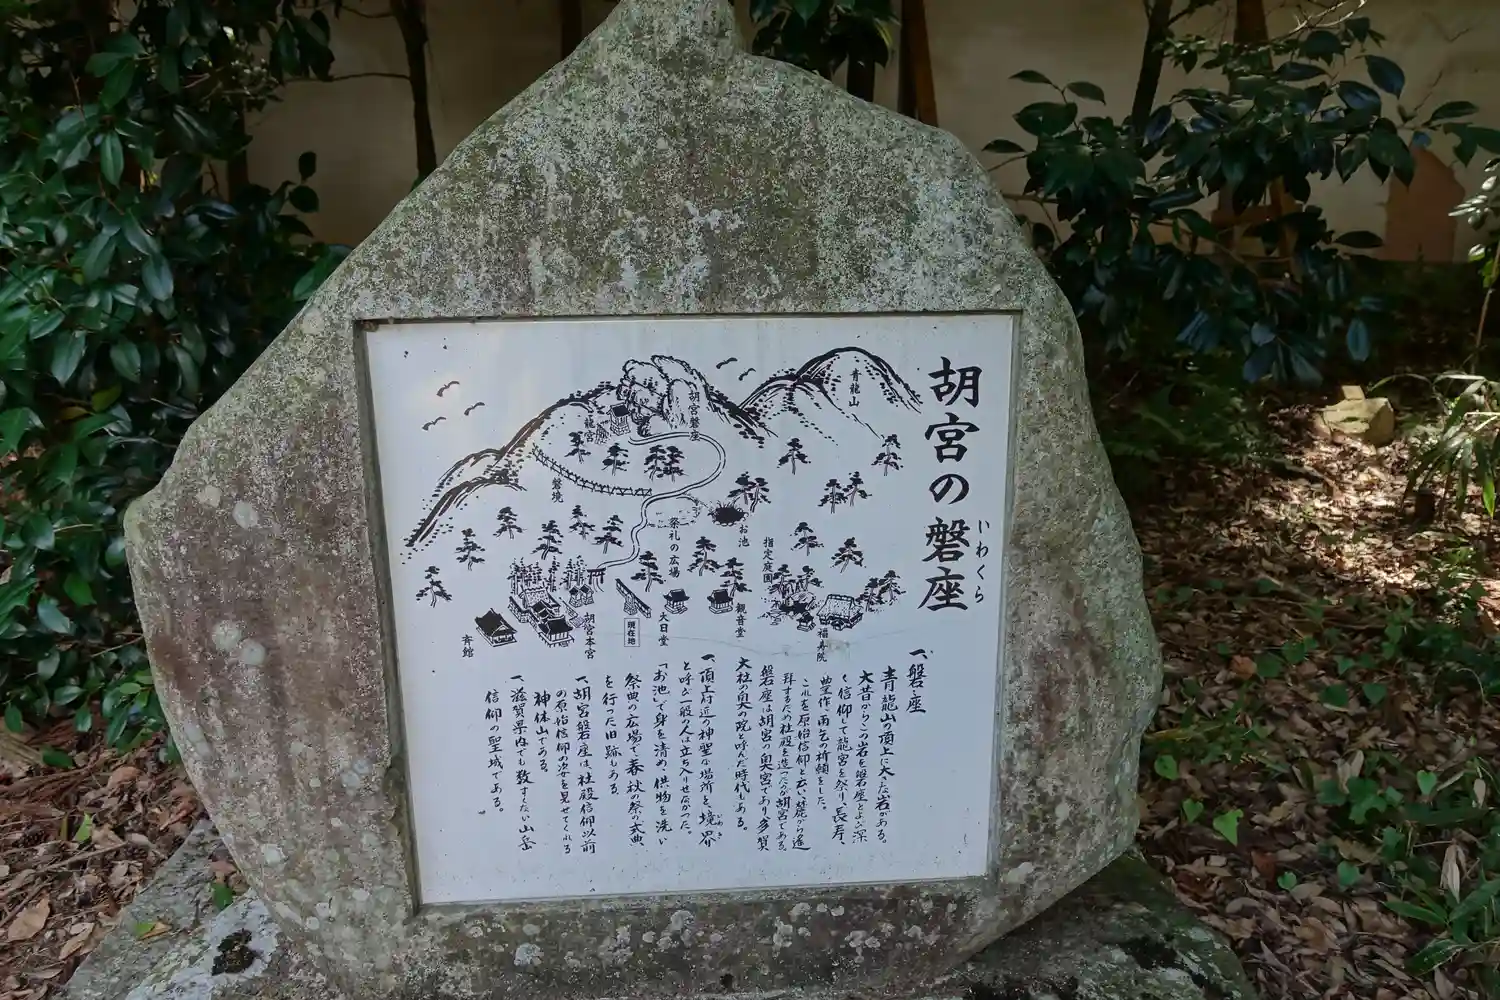 胡宮の磐座
いわくら
青龍山
胡宮磐座
龍宮
磐境
お池
祭礼の広場
指定庭園
福寿院
観音堂
大日堂
現在地
胡宮本宮
斉館
一、磐座
青龍山の頂上に大きな岩がある。
大昔からこの岩を磐座とよび深
く信仰して龍宮を祭り、長寿、
豊作、雨乞の祈願をした。
これを原始信仰と云い麓から遙
拝するため社殿を造ったのが胡宮である。
磐座は胡宮の奥宮であり多賀
大社の奥の院と呼んだ時代もある。
一、頂上付近の神聖な場所を、境界
と呼び一般の人は立ち入りせなかった。
「お池」で身を清め、供物を洗い
祭典の広場で、春、秋の祭の式典、
を行った旧跡もある。
一、胡宮磐座は、社殿信仰以前
の原始信仰の姿を見せてくれる
神体山である。
一、滋賀県内でも数すくない山岳
信仰の聖域である。